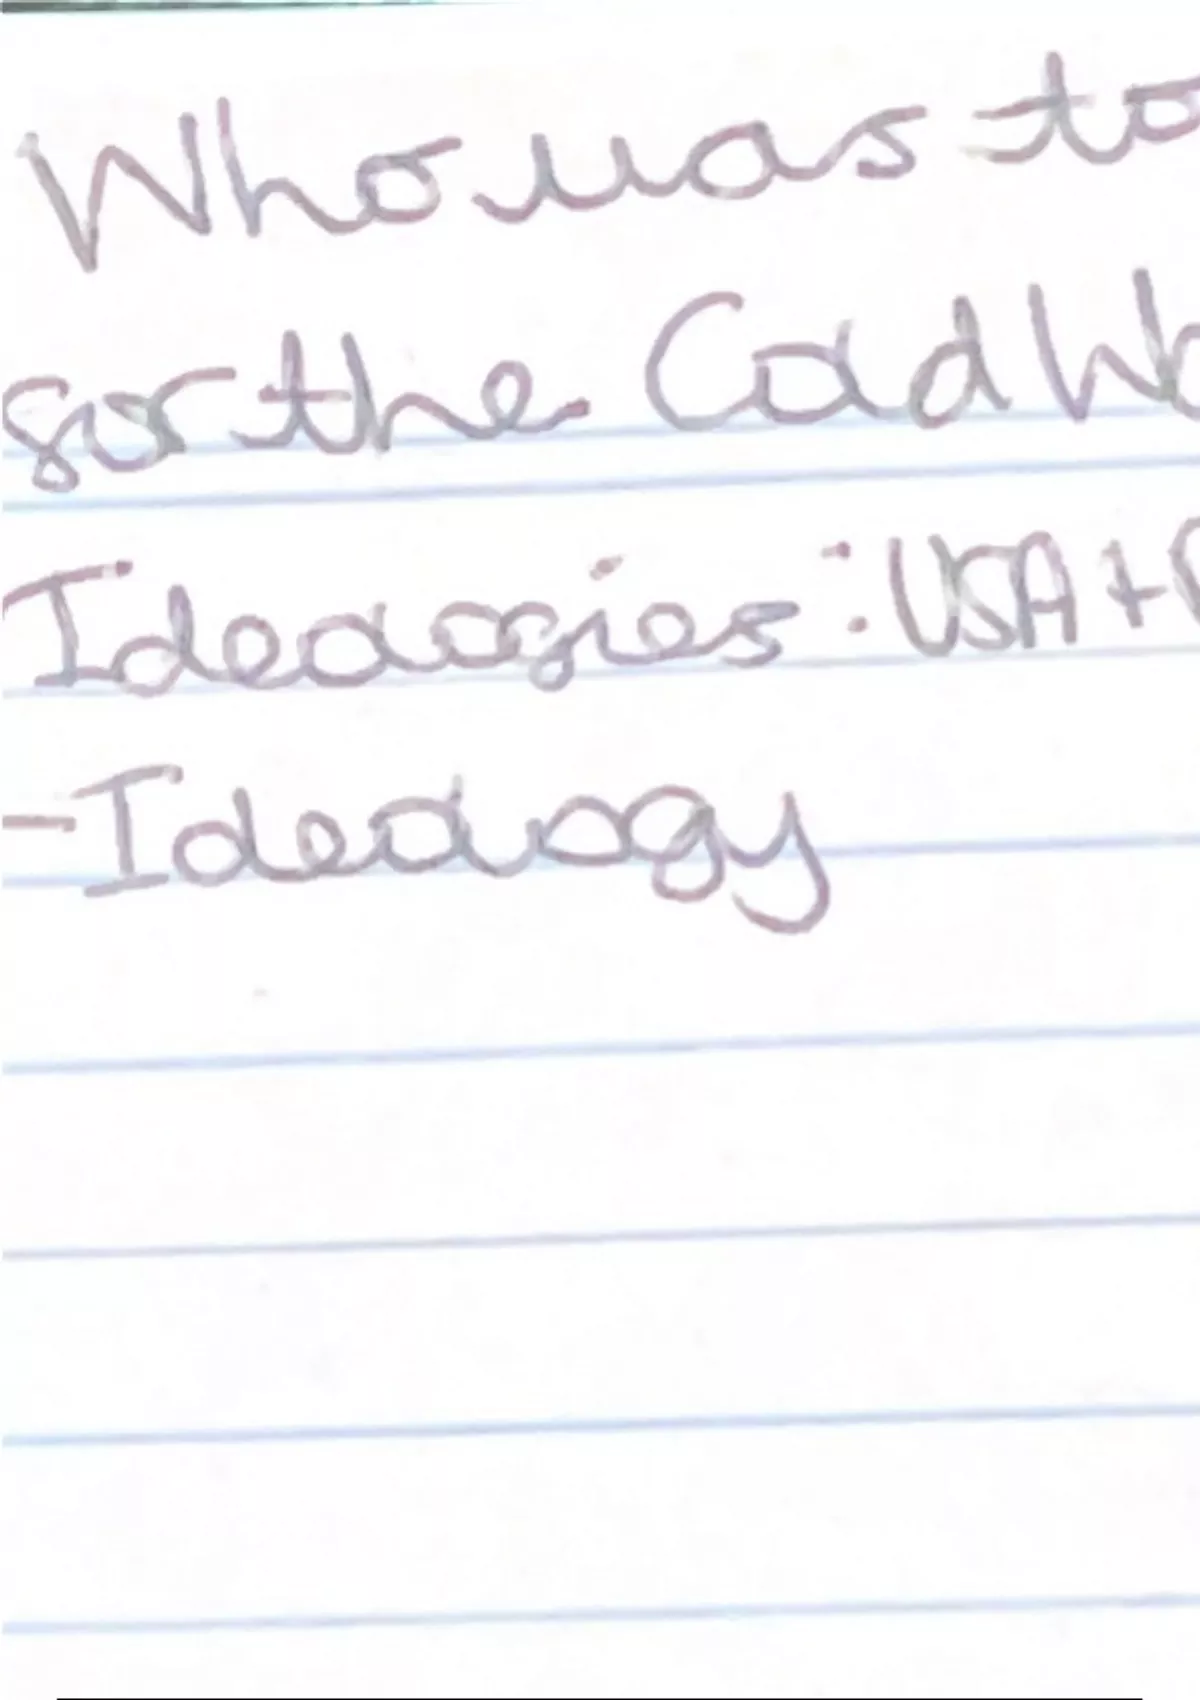 Who was to
for the Cold Wa
Ideologies: USA +
- Ideology